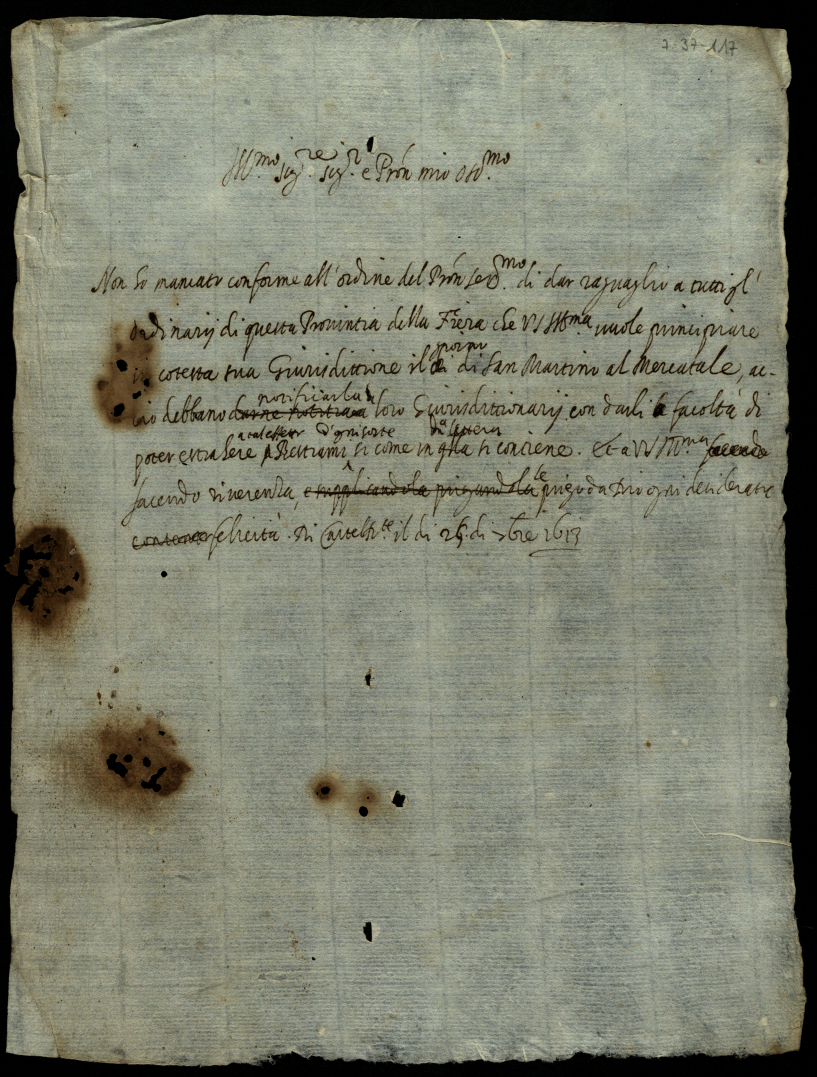 7-37-117
Ill.mo sig.re sig.r e Pron mio oss.mo
Non ho mancato conforme all'ordine del Pron Ser.mo di dar raguaglio a tutti gl'
ordinarij di questa Provintia della Fiera che VS Ill.ma vuole principiare
in cotesta sua Giurisdittione il
giorno
di San Martino al Mercatale, ac-
ciò debbano darne notitia a
notificarla
loro Giurisdittionarij con darli la facoltà di
a tal effetto d'ogni sorte
d.a lettera
poter estrahere Bestiami si come in q.lla si contiene. Et a VS Ill.ma facendo
facendo riverenza, e supplicandola pregandola prego da Dio ogni desiderata
contento felicità. Di il di 26 di 7bre 1613